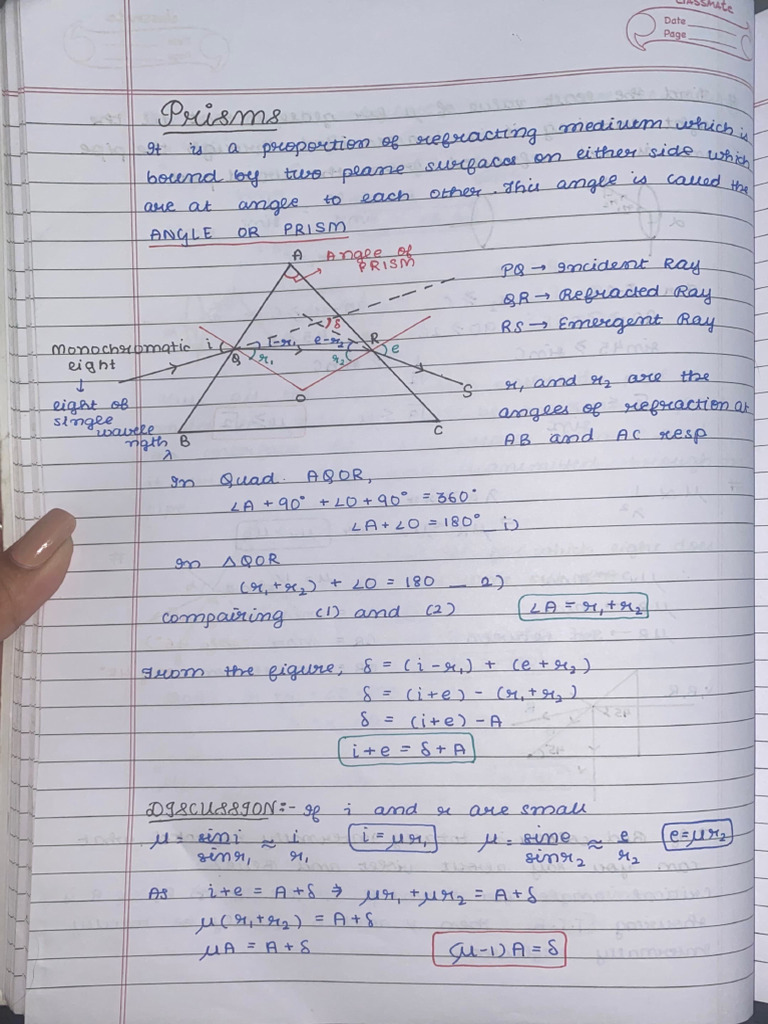 classmate
Date
Page
Prisms
It is a proportion of refracting medium which is
bound by two plane surfaces on either side which
are at angle to each other. This angle is called the
ANGLE OR PRISM
A
Angle of
PRISM
PQ → Incident Ray
QR → Refracted Ray
RS → Emergent Ray
δ
Monochromatic
light
↓
light of
single
wavele
ngth
λ
i
Q
i-r₁
r₁
e-r₂
r₂
R
e
O
S
B
C
r₁ and r₂ are the
angles of refraction at
AB and AC resp
In Quad. AQOR,
∠A + 90° + ∠O + 90° = 360°
∠A + ∠O = 180° i)
In △QOR
(r₁ + r₂) + ∠O = 180 _ 2)
compairing (1) and (2) ∠A = r₁ + r₂
From the figure, δ = (i - r₁) + (e + r₂)
δ = (i+e) - (r₁ + r₂)
δ = (i+e) - A
i + e = δ + A
DISCUSSION:- If i and r are small
μ = sin i / sin r₁ ≈ i / r₁ i = μr₁ μ = sin e / sin r₂ ≈ e / r₂ e = μr₂
As i+e = A+δ ⇒ μr₁ + μr₂ = A+δ
μ(r₁ + r₂) = A+δ
μA = A+δ (μ-1) A = δ